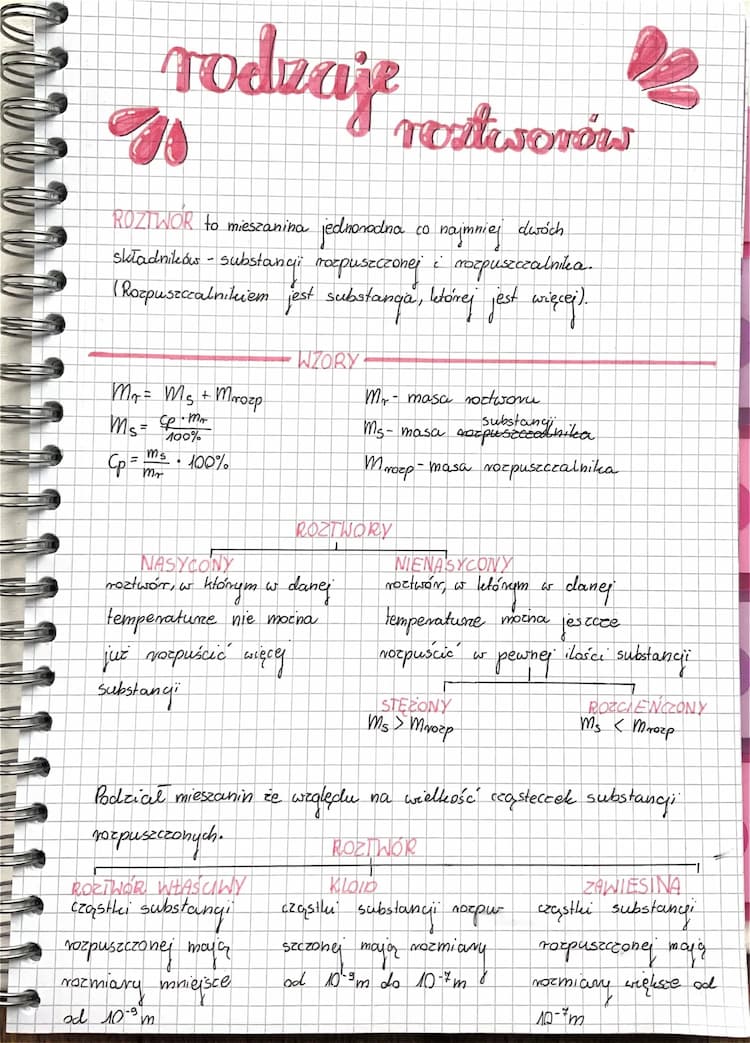 rodzaje
roztworów
ROZTWÓR to mieszanina jednorodna co najmniej dwóch
składników - substancji rozpuszczonej i rozpuszczalnika.
(Rozpuszczalnikiem jest substancja, której jest więcej).
WZORY
mr = ms + mrozp
ms = cp · mr / 100%
cp = ms / mr · 100%
mr - masa roztworu
ms - masa rozpuszczalnika substancji
mrozp - masa rozpuszczalnika
ROZTWORY
NASYCONY
roztwór, w którym w danej
temperaturze nie można
już rozpuścić więcej
substancji
NIENASYCONY
roztwór, w którym w danej
temperaturze można jeszcze
rozpuścić w pewnej ilości substancji
STĘŻONY
ms > mrozp
ROZCIEŃCZONY
ms < mrozp
Podział mieszanin ze względu na wielkość cząsteczek substancji
rozpuszczonych.
ROZTWÓR
ROZTWÓR WŁAŚCIWY
cząstki substancji
rozpuszczonej mają
rozmiary mniejsze
od 10⁻⁹ m
KLOID
cząstki substancji rozpu-
szczonej mają rozmiary
od 10⁻⁹ m do 10⁻⁷ m
ZAWIESINA
cząstki substancji
rozpuszczonej mają
rozmiary większe od
10⁻⁷ m